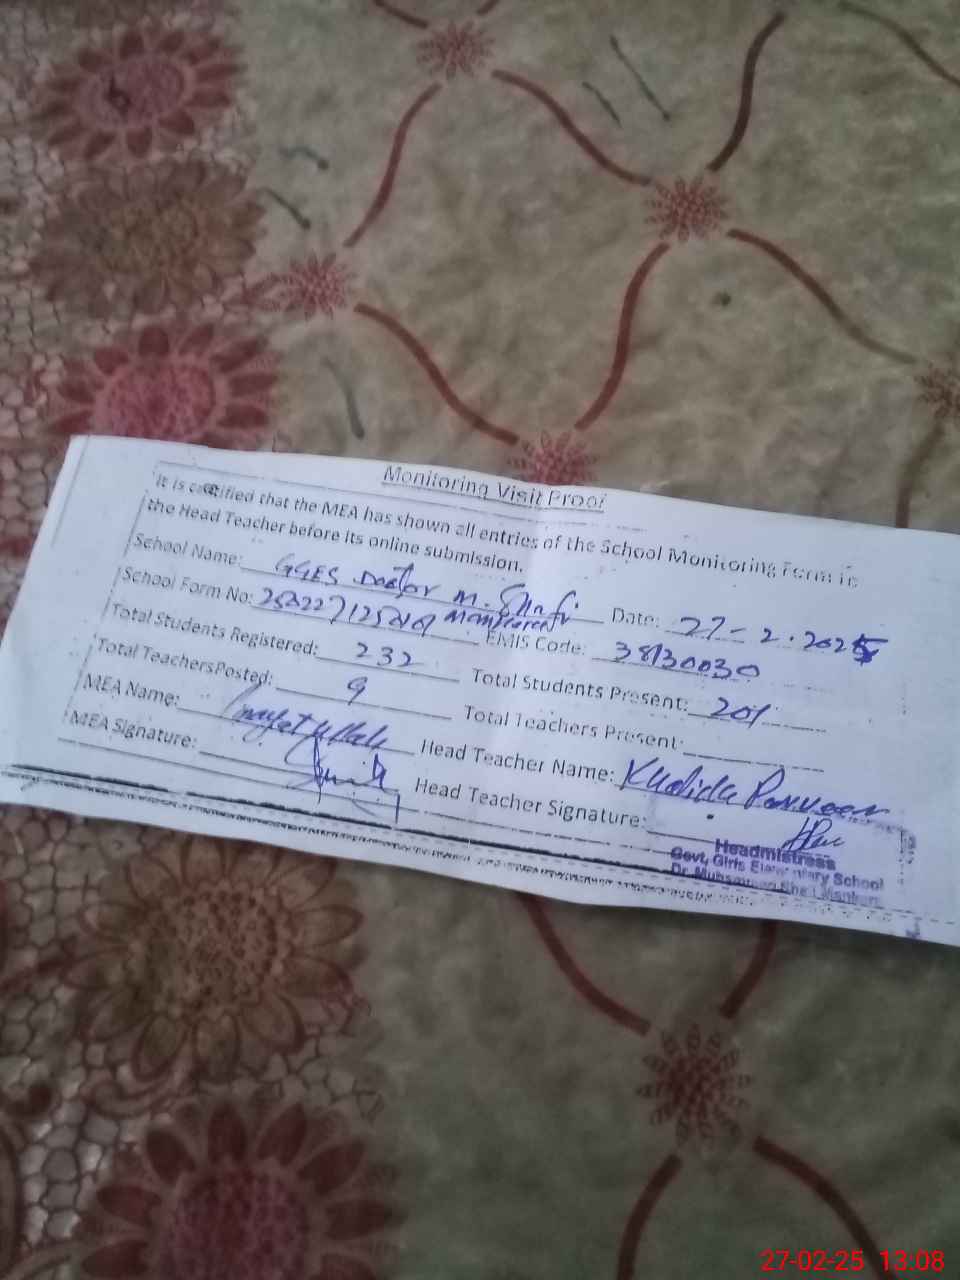 Monitoring Visit Proof
It is certified that the MEA has shown all entries of the School Monitoring Form to
the Head Teacher before its online submission.
School Name: GGES Doctor M. Shafi Date: 27-2.2025
School Form No: EMIS Code: 38130030
Total Students Registered: 232 Total Students Present: 201
Total Teachers Posted: 9 Total Teachers Present:
MEA Name: Inayat ullah Head Teacher Name: Khalida Parveen
MEA Signature: Head Teacher Signature:
Headmistress
Govt, Girls Elementary School
Dr. Muhammad Shafi
27-02-25 13:08